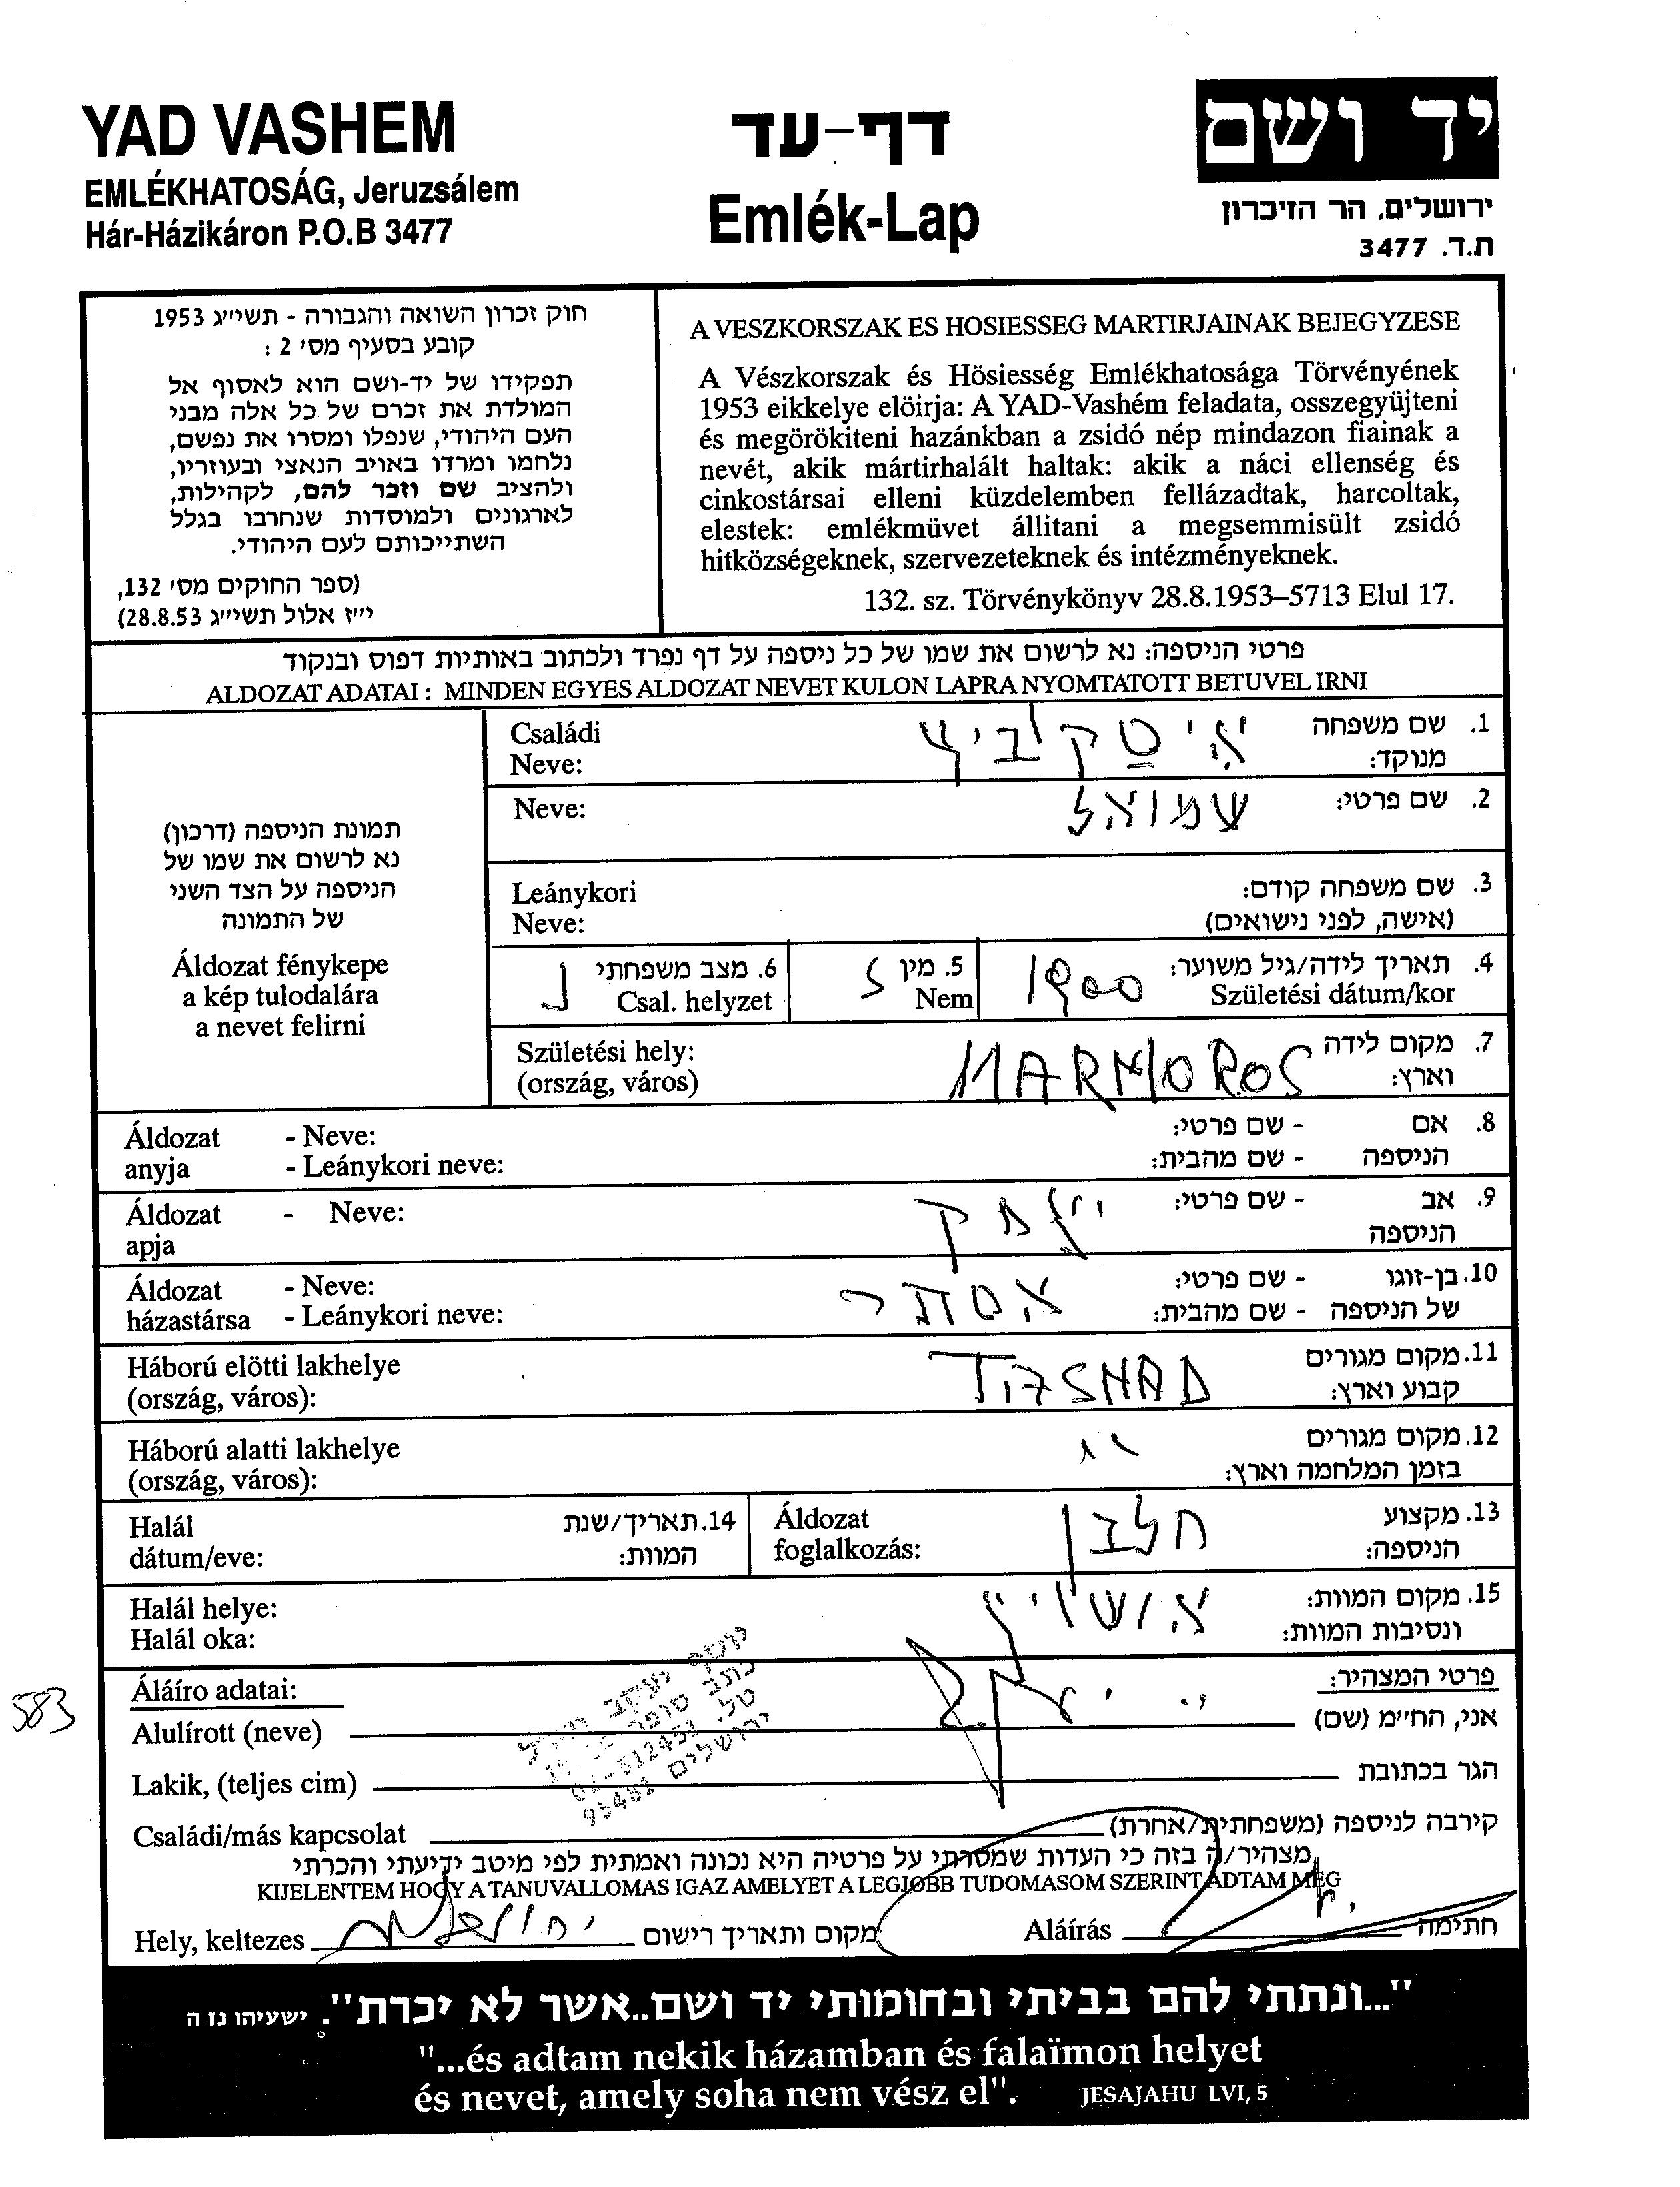 YAD VASHEM
EMLÉKHATOSÁG, Jeruzsálem
Hár-Házikáron P.O.B 3477
דף-עד
Emlék-Lap
יד ושם
ירושלים, הר הזיכרון
ת.ד. 3477
חוק זכרון השואה והגבורה - תשי״ג 1953
קובע בסעיף מס' 2 :
תפקידו של יד-ושם הוא לאסוף אל
המולדת את זכרם של כל אלה מבני
העם היהודי, שנפלו ומסרו את נפשם,
נלחמו ומרדו באויב הנאצי ובעוזריו,
ולהציב שם וזכר להם, לקהילות,
לארגונים ולמוסדות שנחרבו בגלל
השתייכותם לעם היהודי.
(ספר החוקים מס' 132,
י״ז אלול תשי״ג 28.8.53)
A VESZKORSZAK ES HOSIESSEG MARTIRJAINAK BEJEGYZESE
A Vészkorszak és Hösiesség Emlékhatosága Törvényének
1953 eikkelye elöirja: A YAD-Vashém feladata, osszegyüjteni
és megörökiteni hazánkban a zsidó nép mindazon fiainak a
nevét, akik mártirhalált haltak: akik a náci ellenség és
cinkostársai elleni küzdelemben fellázadtak, harcoltak,
elestek: emlékmüvet állitani a megsemmisült zsidó
hitközségeknek, szervezeteknek és intézményeknek.
132. sz. Törvénykönyv 28.8.1953–5713 Elul 17.
פרטי הניספה: נא לרשום את שמו של כל ניספה על דף נפרד ולכתוב באותיות דפוס ובנקוד
ALDOZAT ADATAI : MINDEN EGYES ALDOZAT NEVET KULON LAPRA NYOMTATOTT BETUVEL IRNI
תמונת הניספה (דרכון)
נא לרשום את שמו של
הניספה על הצד השני
של התמונה
Áldozat fénykepe
a kép tulodalára
a nevet felirni
1. שם משפחה
מנוקד:
איסקוביץ
Családi
Neve:
2. שם פרטי:
שמואל
Neve:
3. שם משפחה קודם:
(אישה, לפני נישואים)
Leánykori
Neve:
4. תאריך לידה/גיל משוער:
Születési dátum/kor
1900
5. מין
Nem
6. מצב משפחתי
Csal. helyzet
נ
7. מקום לידה
וארץ:
MARMOROS
Születési hely:
(ország, város)
8. אם - שם פרטי:
הניספה - שם מהבית:
Áldozat - Neve:
anyja - Leánykori neve:
9. אב - שם פרטי:
הניספה
Áldozat - Neve:
apja
10. בן-זוגו - שם פרטי:
של הניספה - שם מהבית:
אסתר
Áldozat - Neve:
házastársa - Leánykori neve:
11. מקום מגורים
קבוע וארץ:
TASNAD
Háború elötti lakhelye
(ország, város):
12. מקום מגורים
בזמן המלחמה וארץ:
״
Háború alatti lakhelye
(ország, város):
13. מקצוע
הניספה:
חלבן
Áldozat
foglalkozás:
14. תאריך/שנת
המוות:
Halál
dátum/eve:
15. מקום המוות:
ונסיבות המוות:
אושויץ
Halál helye:
Halál oka:
פרטי המצהיר:
Áláíro adatai:
583
אני, החי״מ (שם)
Alulírott (neve)
הגר בכתובת
Lakik, (teljes cim)
ירושלים 95481
קירבה לניספה (משפחתית/אחרת)
Családi/más kapcsolat
מצהיר/ה בזה כי העדות שמסרתי על פרטיה היא נכונה ואמתית לפי מיטב ידיעתי והכרתי
KIJELENTEM HOGY A TANUVALLOMAS IGAZ AMELYET A LEGJOBB TUDOMASOM SZERINT ADTAM MEG
Hely, keltezes
מקום ותאריך רישום
Aláírás
חתימה
"...ונתתי להם בביתי ובחומותי יד ושם..אשר לא יכרת". ישעיהו נז ה
"...és adtam nekik házamban és falaïmon helyet
és nevet, amely soha nem vész el". JESAJAHU LVI, 5